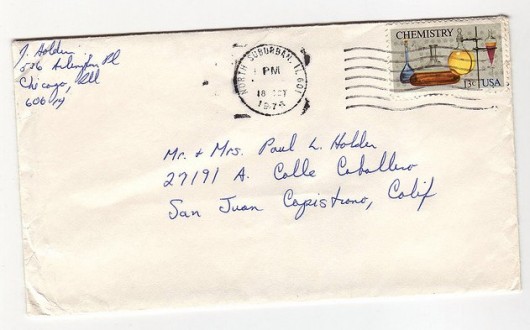 J. Holder
536 Arlington Pl
Chicago, Ill
60614
NORTH SUBURBAN, IL 601
PM
18 OCT
1976
CHEMISTRY
13c USA
Mr. + Mrs. Paul L. Holder
27191 A. Calle Caballero
San Juan Capistrano, Calif